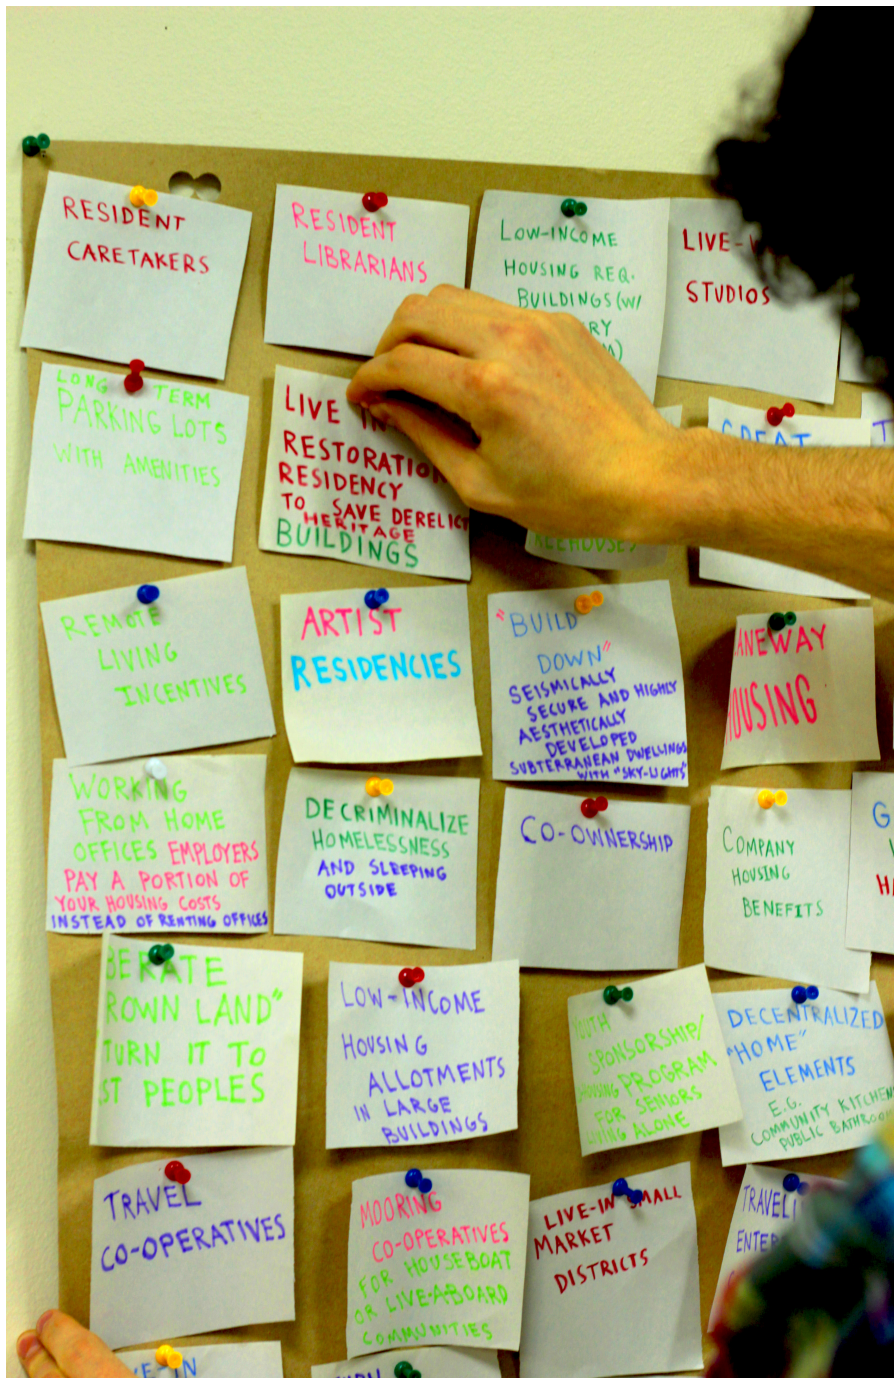 RESIDENT
CARETAKERS
RESIDENT
LIBRARIANS
LOW-INCOME
HOUSING REQ.
BUILDINGS (W/
LIVE-
STUDIOS
LONG TERM
PARKING LOTS
WITH AMENITIES
LIVE IN
RESTORATION
RESIDENCY
TO SAVE DERELICT
HERITAGE
BUILDINGS
GREAT
REMOTE
LIVING
INCENTIVES
ARTIST
RESIDENCIES
"BUILD
DOWN"
SEISMICALLY
SECURE AND HIGHLY
AESTHETICALLY
DEVELOPED
SUBTERRANEAN DWELLINGS
WITH "SKY-LIGHTS"
ANEWAY
OUSING
WORKING
FROM HOME
OFFICES EMPLOYERS
PAY A PORTION OF
YOUR HOUSING COSTS
INSTEAD OF RENTING OFFICES
DECRIMINALIZE
HOMELESSNESS
AND SLEEPING
OUTSIDE
CO-OWNERSHIP
COMPANY
HOUSING
BENEFITS
BERATE
ROWN LAND"
TURN IT TO
ST PEOPLES
LOW-INCOME
HOUSING
ALLOTMENTS
IN LARGE
BUILDINGS
SPONSORSHIP/
PROGRAM
FOR SENIORS
LIVING ALONE
DECENTRALIZED
"HOME"
ELEMENTS
E.G.
COMMUNITY KITCHEN
PUBLIC BATHROO
TRAVEL
CO-OPERATIVES
MOORING
CO-OPERATIVES
FOR HOUSEBOAT
OR LIVE-A-BOARD
COMMUNITIES
LIVE-IN SMALL
MARKET
DISTRICTS
TRAVELI
ENTER
VE-IN